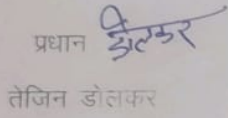 प्रधान डोलकर
तेजिन डोलकर